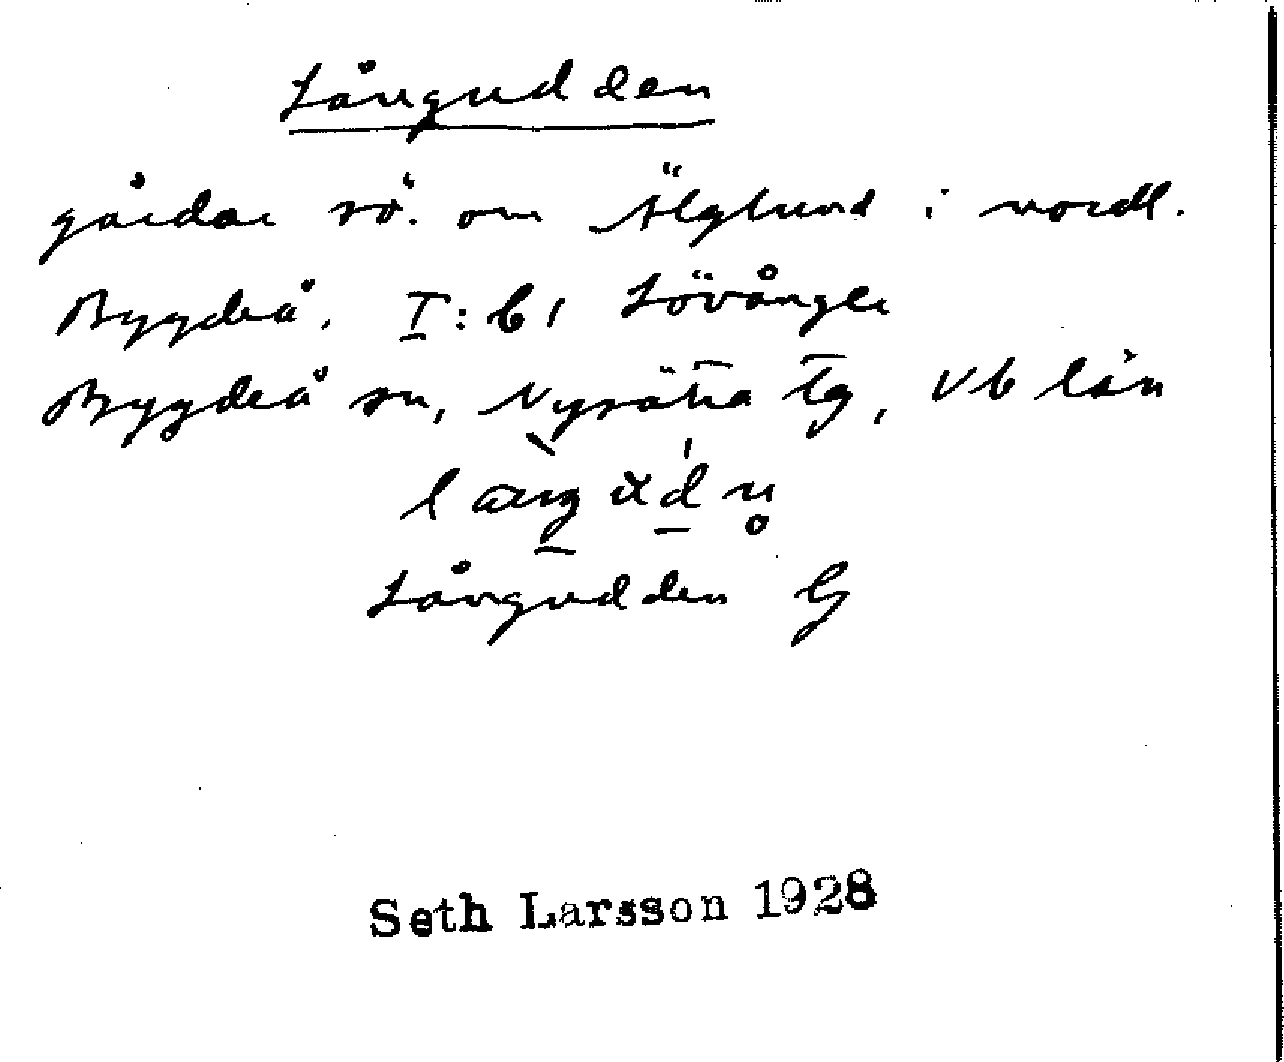 Långudden
gårdar sö. om Älglund i nordl.
Bygdeå. I: 61 Lövånger
Bygdeå sn, Nysätra tg, Vb län
Långudden G
Seth Larsson 1928